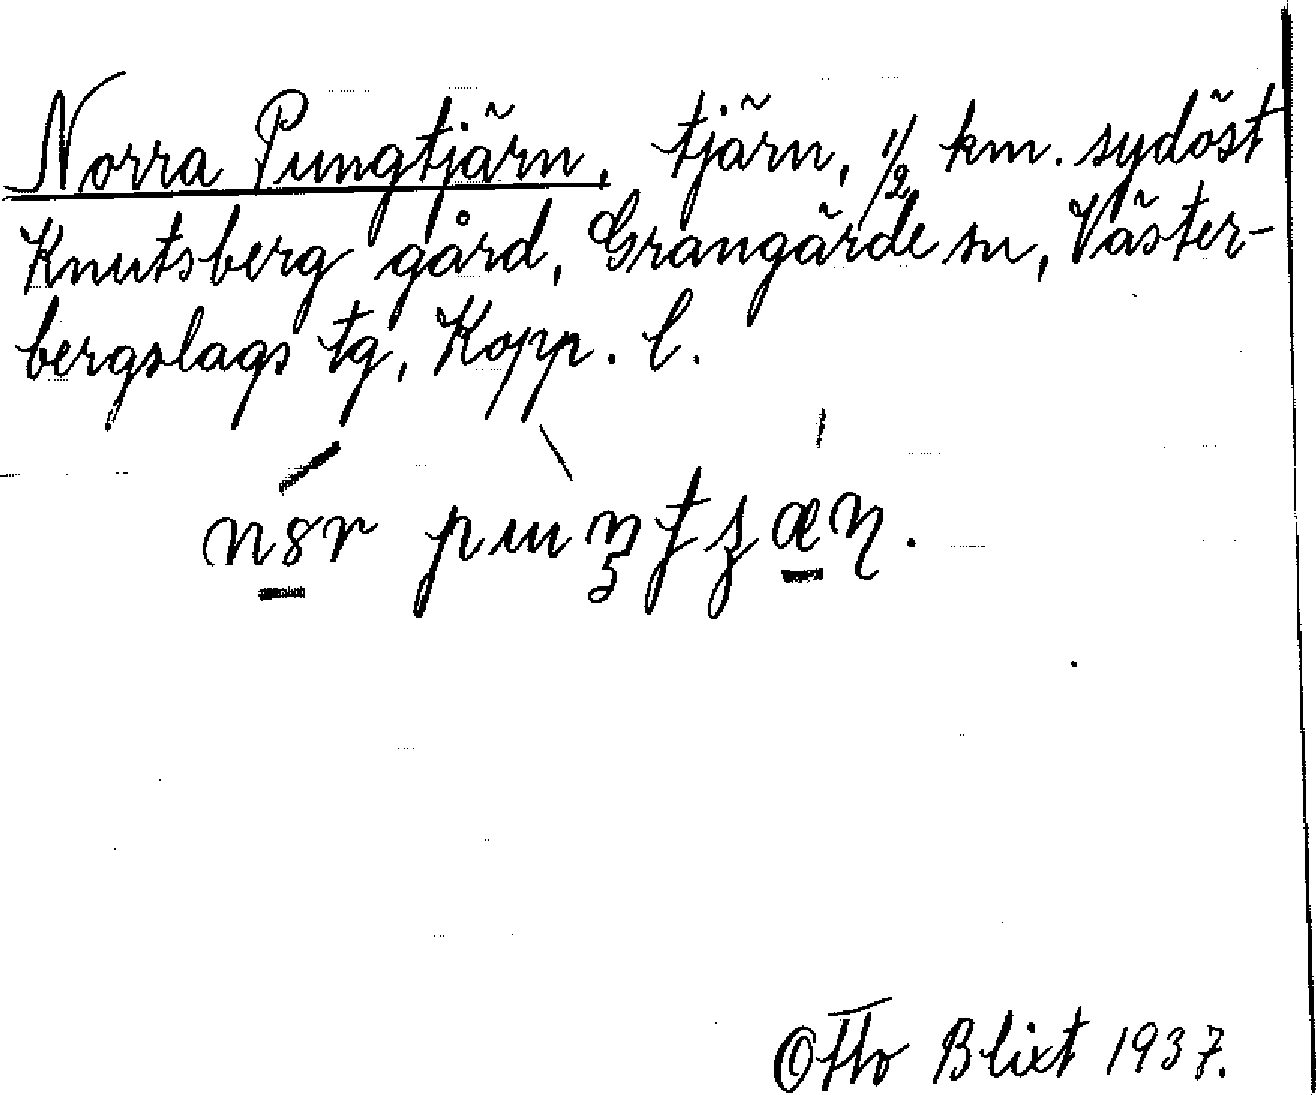 Norra Pungtjärn, tjärn, 1/2 km. sydöst
Knutsberg gård, Grangärde sn, Väster-
bergslags tg, Kopp. l.
Otto Blixt 1937.